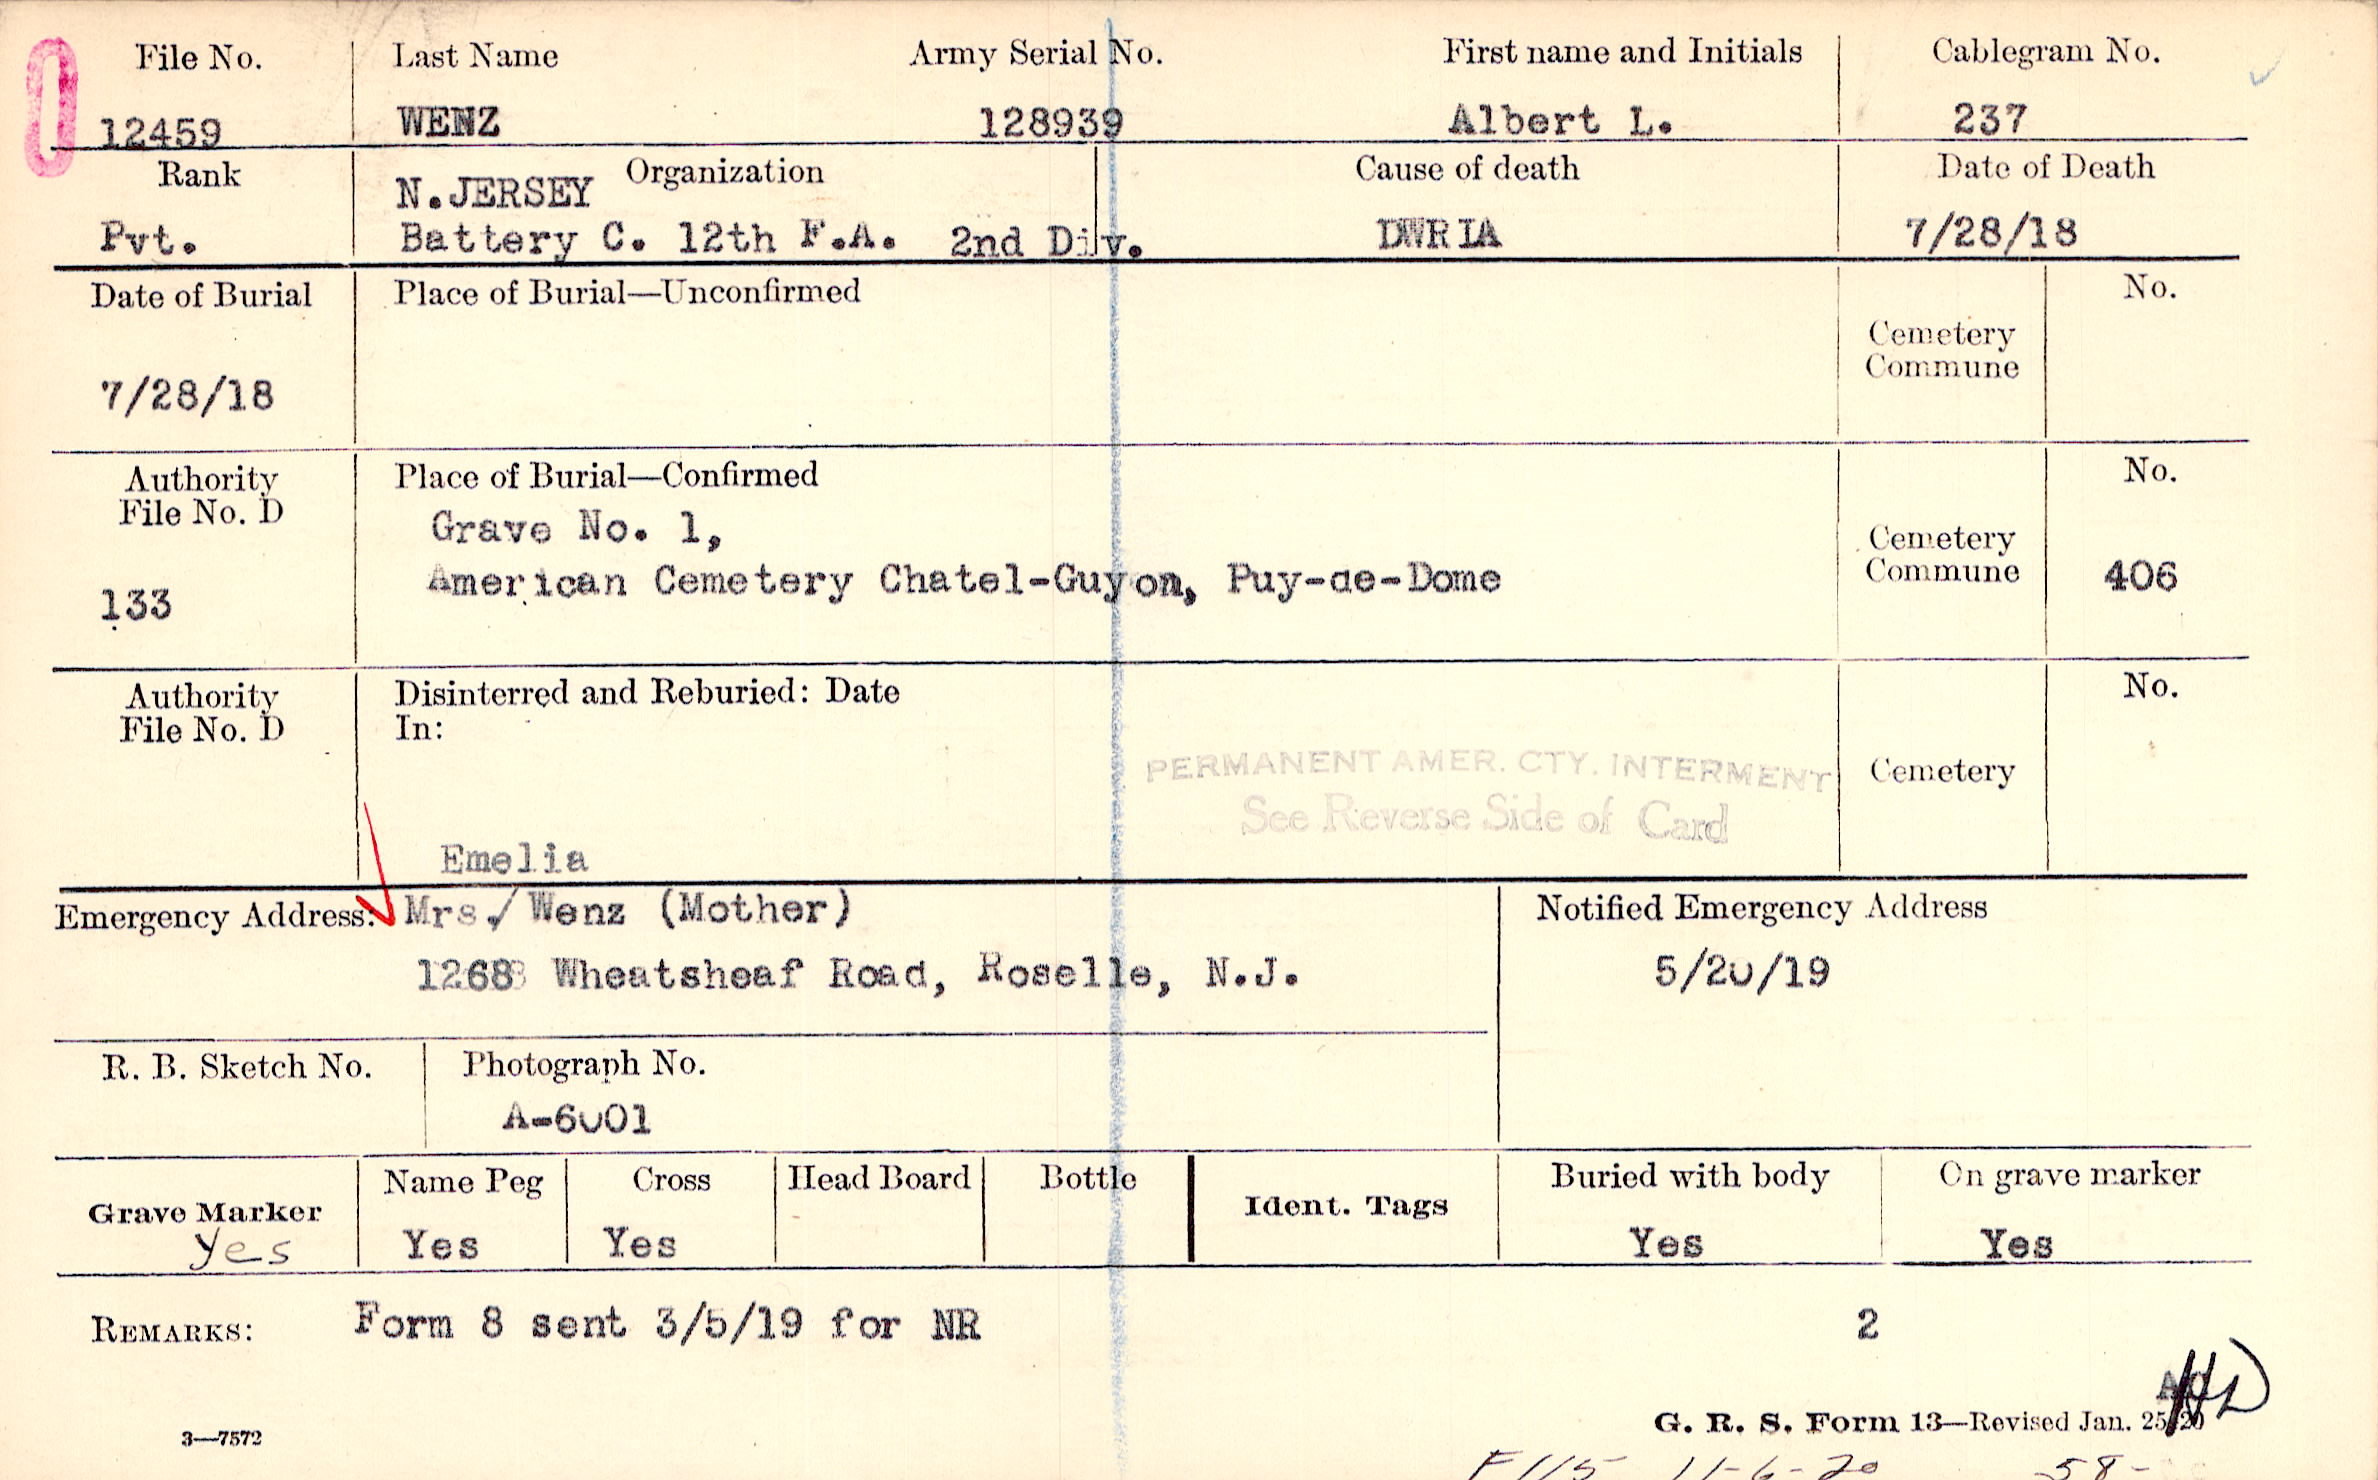 File No. Last Name Army Serial No. First name and Initials Cablegram No.
12459 WENZ 128939 Albert L. 237
Rank Organization Cause of death Date of Death
N.JERSEY
Pvt. Battery C. 12th F.A. 2nd Div. DWRIA 7/28/18
Date of Burial Place of Burial—Unconfirmed No.
Cemetery
Commune
7/28/18
Authority Place of Burial—Confirmed No.
File No. D
Grave No. 1,
Cemetery
American Cemetery Chatel-Guyon, Puy-de-Dome Commune 406
133
Authority Disinterred and Reburied: Date No.
File No. D In:
PERMANENT AMER. CTY. INTERMENT Cemetery
See Reverse Side of Card
Emelia
Emergency Address: Mrs./ Wenz (Mother) Notified Emergency Address
1268 Wheatsheaf Road, Roselle, N.J. 5/20/19
R. B. Sketch No. Photograph No.
A-6001
Name Peg Cross Head Board Bottle Buried with body On grave marker
Grave Marker Ident. Tags
Yes Yes Yes Yes Yes
REMARKS: Form 8 sent 3/5/19 for NR 2
HD
G. R. S. Form 13—Revised Jan. 25/20
3—7572
F115 11-6-20 58-